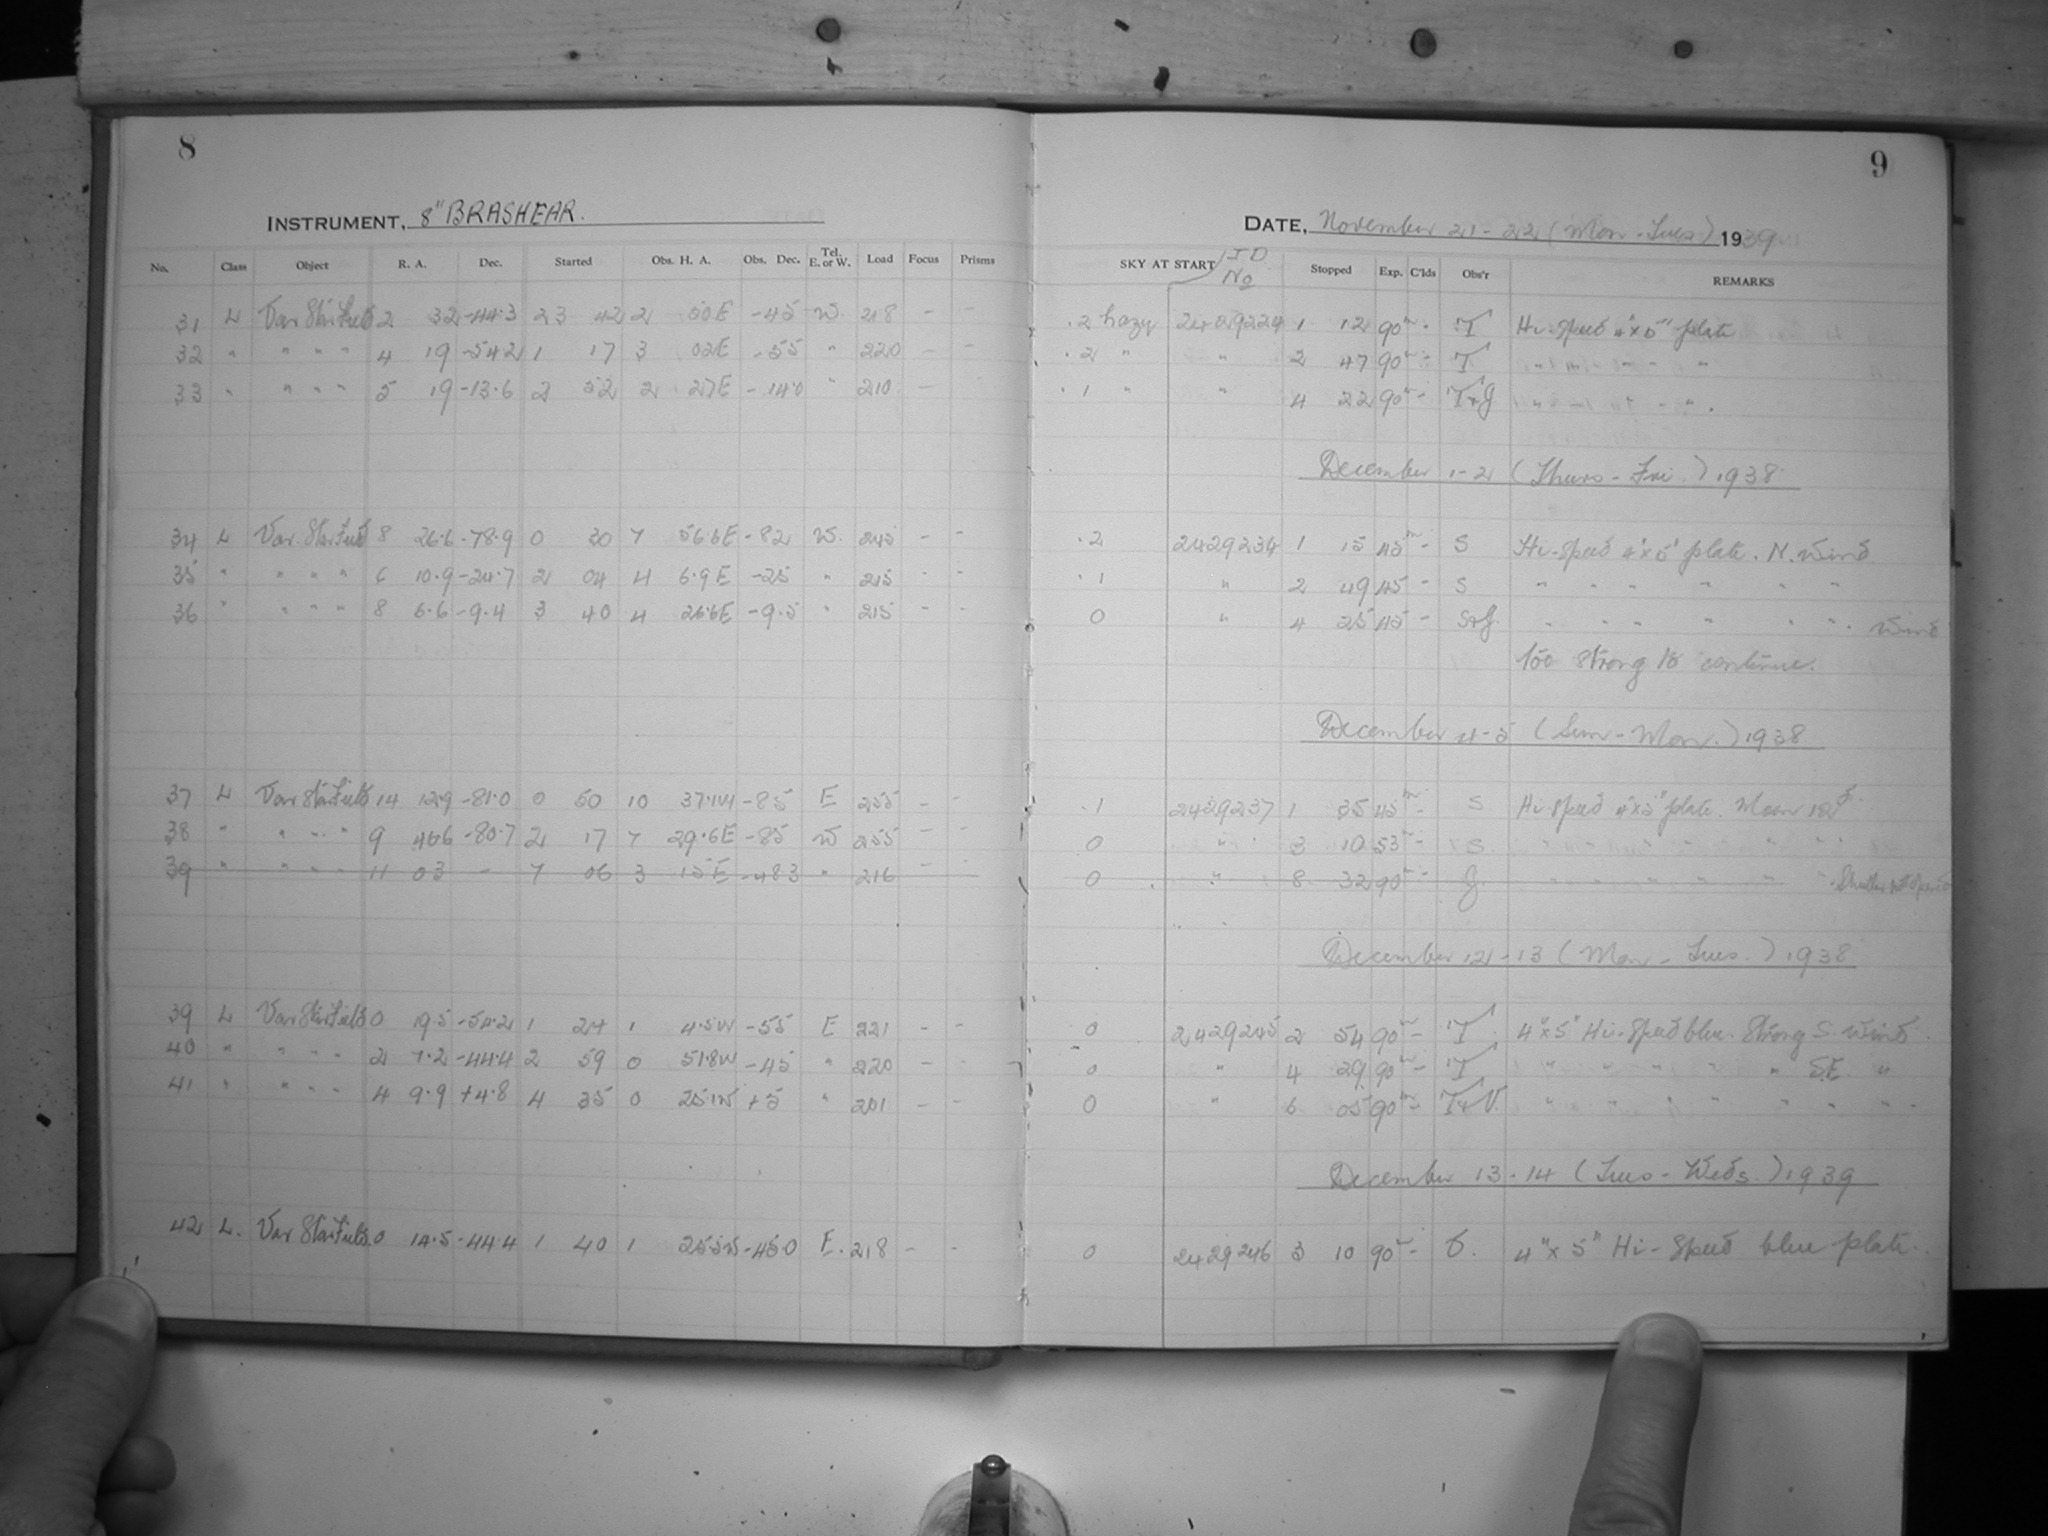 8
9
INSTRUMENT, 8" BRASHEAR.
DATE, November 21-22 (Mon-Tues) 1939
No. Class Object R. A. Dec. Started Obs. H. A. Obs. Dec. Tel. E. or W. Load Focus Prisms SKY AT START JD No Stopped Exp. C'lds Obs'r REMARKS
31 L Var Star Field 2 32 -44.3 23 42 2 50E -45 W. 218 - - .2 hazy 2429224 1 12 90m - T Hi-speed 4"x5" plate
32 " " " " 4 19 -54.2 1 17 3 02E -55 " 220 - - .2 " " 2 47 90m - T " " " " "
33 " " " " 5 19 -13.6 2 52 2 27E -14.0 " 210 - - .1 " " 4 22 90m - T+G " " " " " .
December 1-2 (Thurs-Fri.) 1938
34 L Var. Star Field 8 26.6 -78.9 0 30 7 56.6E -82 W. 245 - - .2 2429234 1 15 45m - S Hi-speed 4"x5" plate. N. Wind
35 " " " " 6 10.9 -24.7 2 04 4 6.9E -25 " 215 - - .1 " 2 49 45 - S " " " " " "
36 " " " " 8 6.6 -9.4 3 40 4 26.6E -9.5 " 215 - - 0 " 4 25 45 - S+G. " " " " " ". Wind
too strong to continue.
December 4-5 (Sun-Mon.) 1938
37 L Var Star Field 14 12.9 -81.0 0 50 10 37.1W -85 E 255 - - .1 2429237 1 35 45m - S Hi-speed 4"x5" plate. Moon 12d.
38 " " " " 9 40.6 -80.7 2 17 7 29.6E -85 W 255 - - 0 " 3 10 53m - S " " " " " "
39 " " " " 11 03 - 7 06 3 15E -48.3 " 216 - - 0 " 8 32 90m - G " " " " " " Shutter not opened
December 12-13 (Mon-Tues.) 1938
39 L Var Star Field 0 19.5 -54.2 1 24 1 4.5W -55 E 221 - - 0 2429245 2 54 90m - T 4"x5" Hi-Speed blue. Strong S. wind.
40 " " " " 2 7.2 -44.4 2 59 0 51.8W -45 " 220 - - 0 " 4 29 90m - T " " " " " " S.E. "
41 " " " " 4 9.9 +4.8 4 35 0 25.1W +5 " 201 - - 0 " 6 05 90m - T+V. " " " " " " " "
December 13-14 (Tues-Weds.) 1939
42 L. Var Star Field. 0 14.5 -44.4 1 40 1 25.5W -45.0 E. 218 - - 0 2429246 3 10 90m - 4"x5" Hi-Speed blue plate.